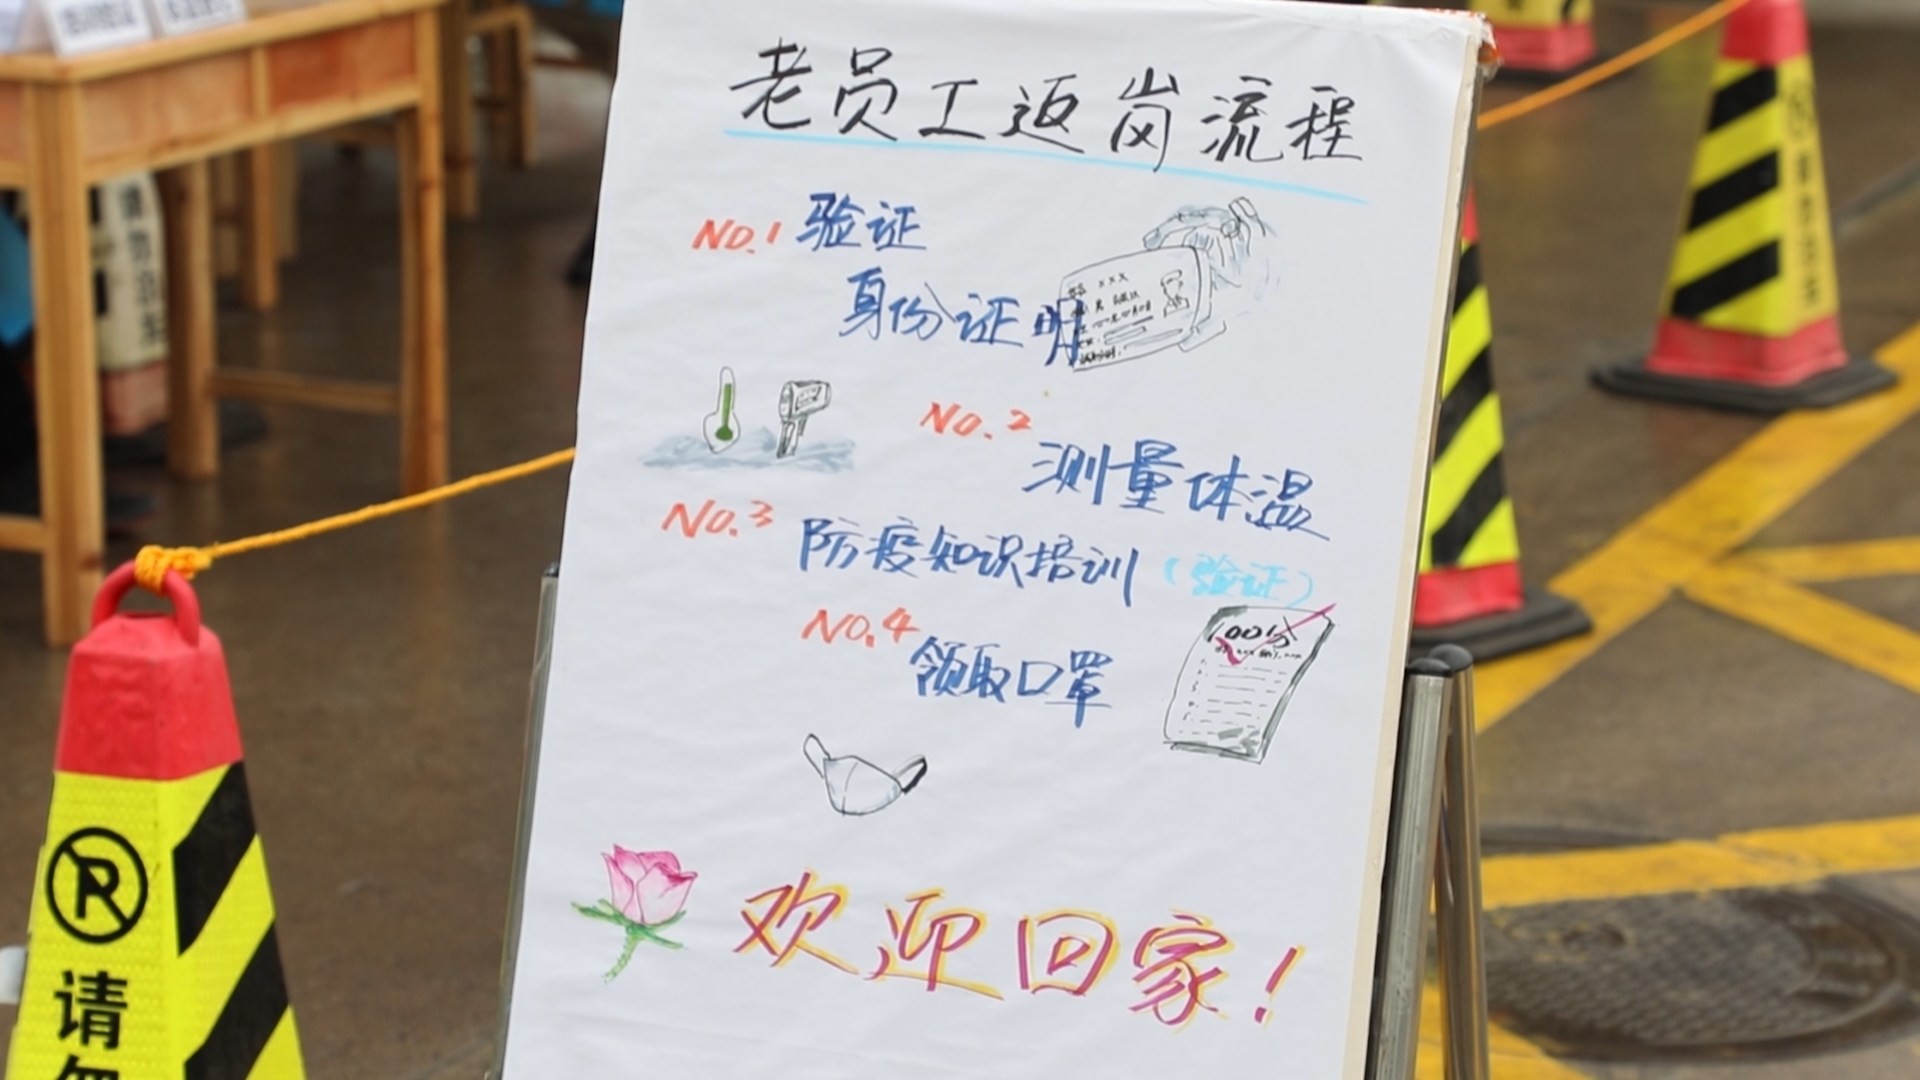 老员工返岗流程
No.1 验证
身份证明
No.2
测量体温
No.3 防疫知识培训（验证）
No.4 领取口罩
100分
欢迎回家！
请勿